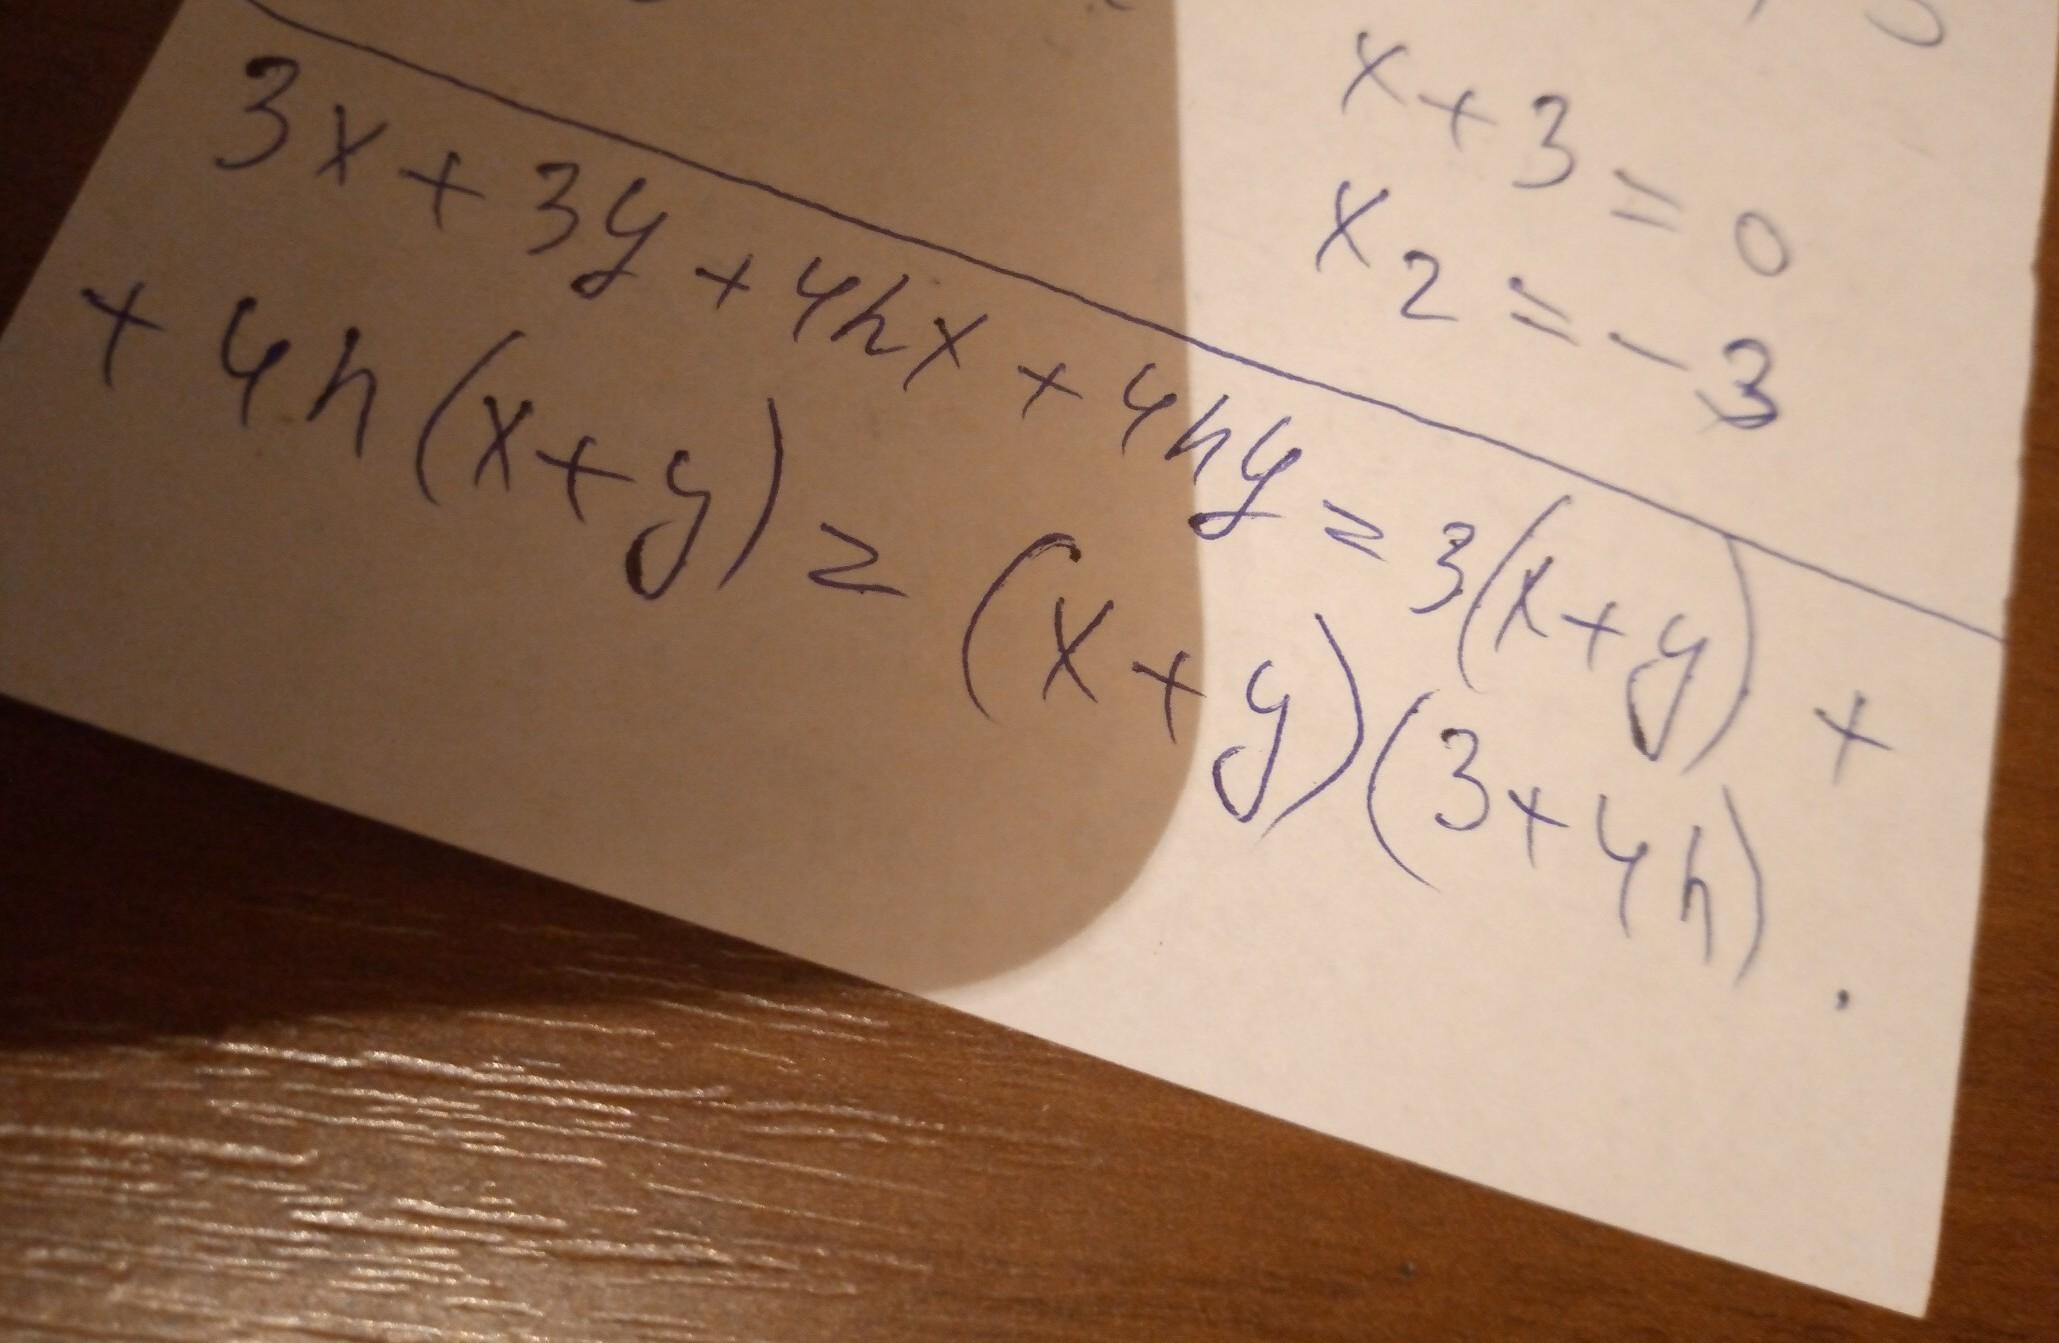 x + 3 = 0
x2 = -3
3x + 3y + 4hx + 4hy = 3(x+y) +
+ 4h(x+y) = (x+y)(3+4h).